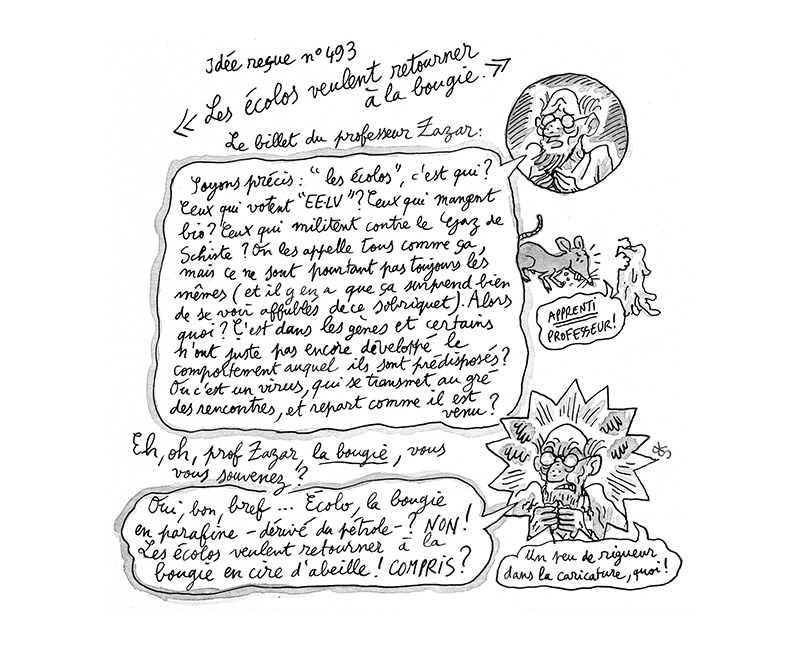 Idée reçue n°493
« Les écolos veulent retourner
à la bougie. »
Le billet du professeur Zazar :
Soyons précis : "les écolos", c'est qui ?
Ceux qui votent "EELV" ? Ceux qui mangent
bio ? Ceux qui militent contre le Gaz de
Schiste ? On les appelle tous comme ça,
mais ce ne sont pourtant pas toujours les
mêmes (et il y en a que ça surprend bien
de se voir affublés de ce sobriquet). Alors
quoi ? C'est dans les gènes et certains
n'ont juste pas encore développé le
comportement auquel ils sont prédisposés ?
Ou c'est un virus, qui se transmet au gré
des rencontres, et repart comme il est
venu ?
APPRENTI
PROFESSEUR !
Eh, oh, prof Zazar, la bougie, vous
vous souvenez ?
Oui, bon, bref ... Écolo, la bougie
en parafine - dérivé du pétrole - ? NON !
Les écolos veulent retourner à la
bougie en cire d'abeille ! COMPRIS ?
Un peu de rigueur
dans la caricature, quoi !